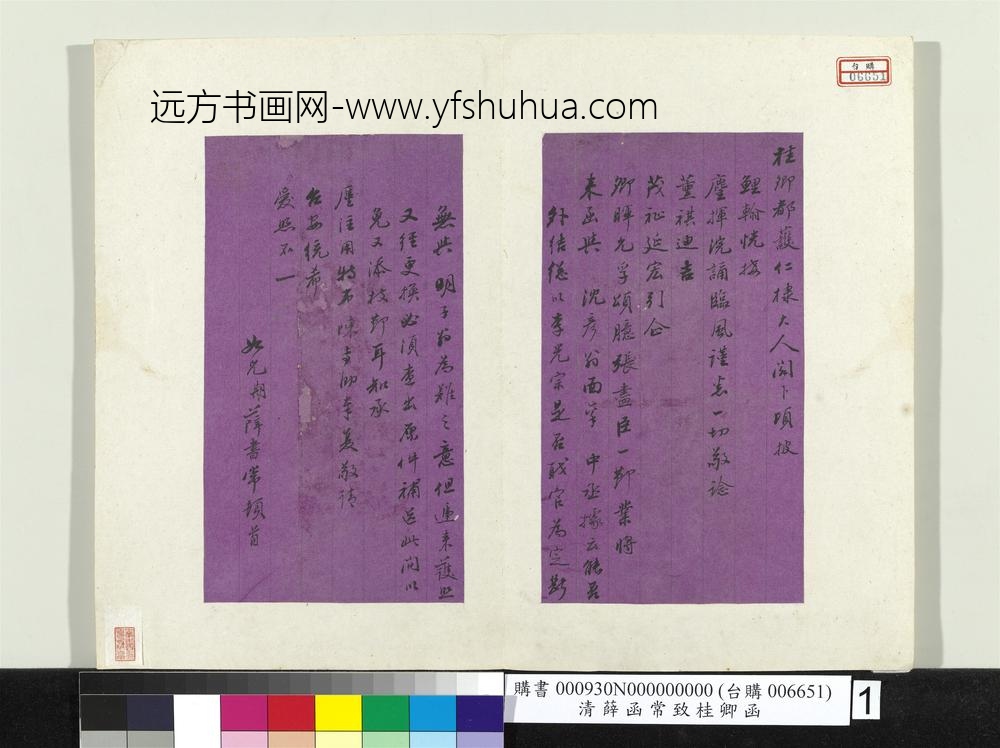 远方书画网-www.yfshuhua.com
台購
006651
桂卿都護仁棣大人閣下頃披
鯉翰恍接
麈揮浣誦臨風謹悉一切敬諗
薑祺迪吉
茂祉延宏引企
卿暉允孚頌臆張藎臣一節業將
來函與 沈彥翁面 中丞據云能否
外結總以李兄宗是否職官為定斷
無與 明子翁為難之意但連來護照
又經更換必須查出原件補送此間以
免又添枝節耳知承
廑注用特布陳専泐奉复敬請
台安統希
愛照不一
如兄期薛書常頓首
購書 000930N000000000 (台購 006651)
清薛函常致桂卿函
1